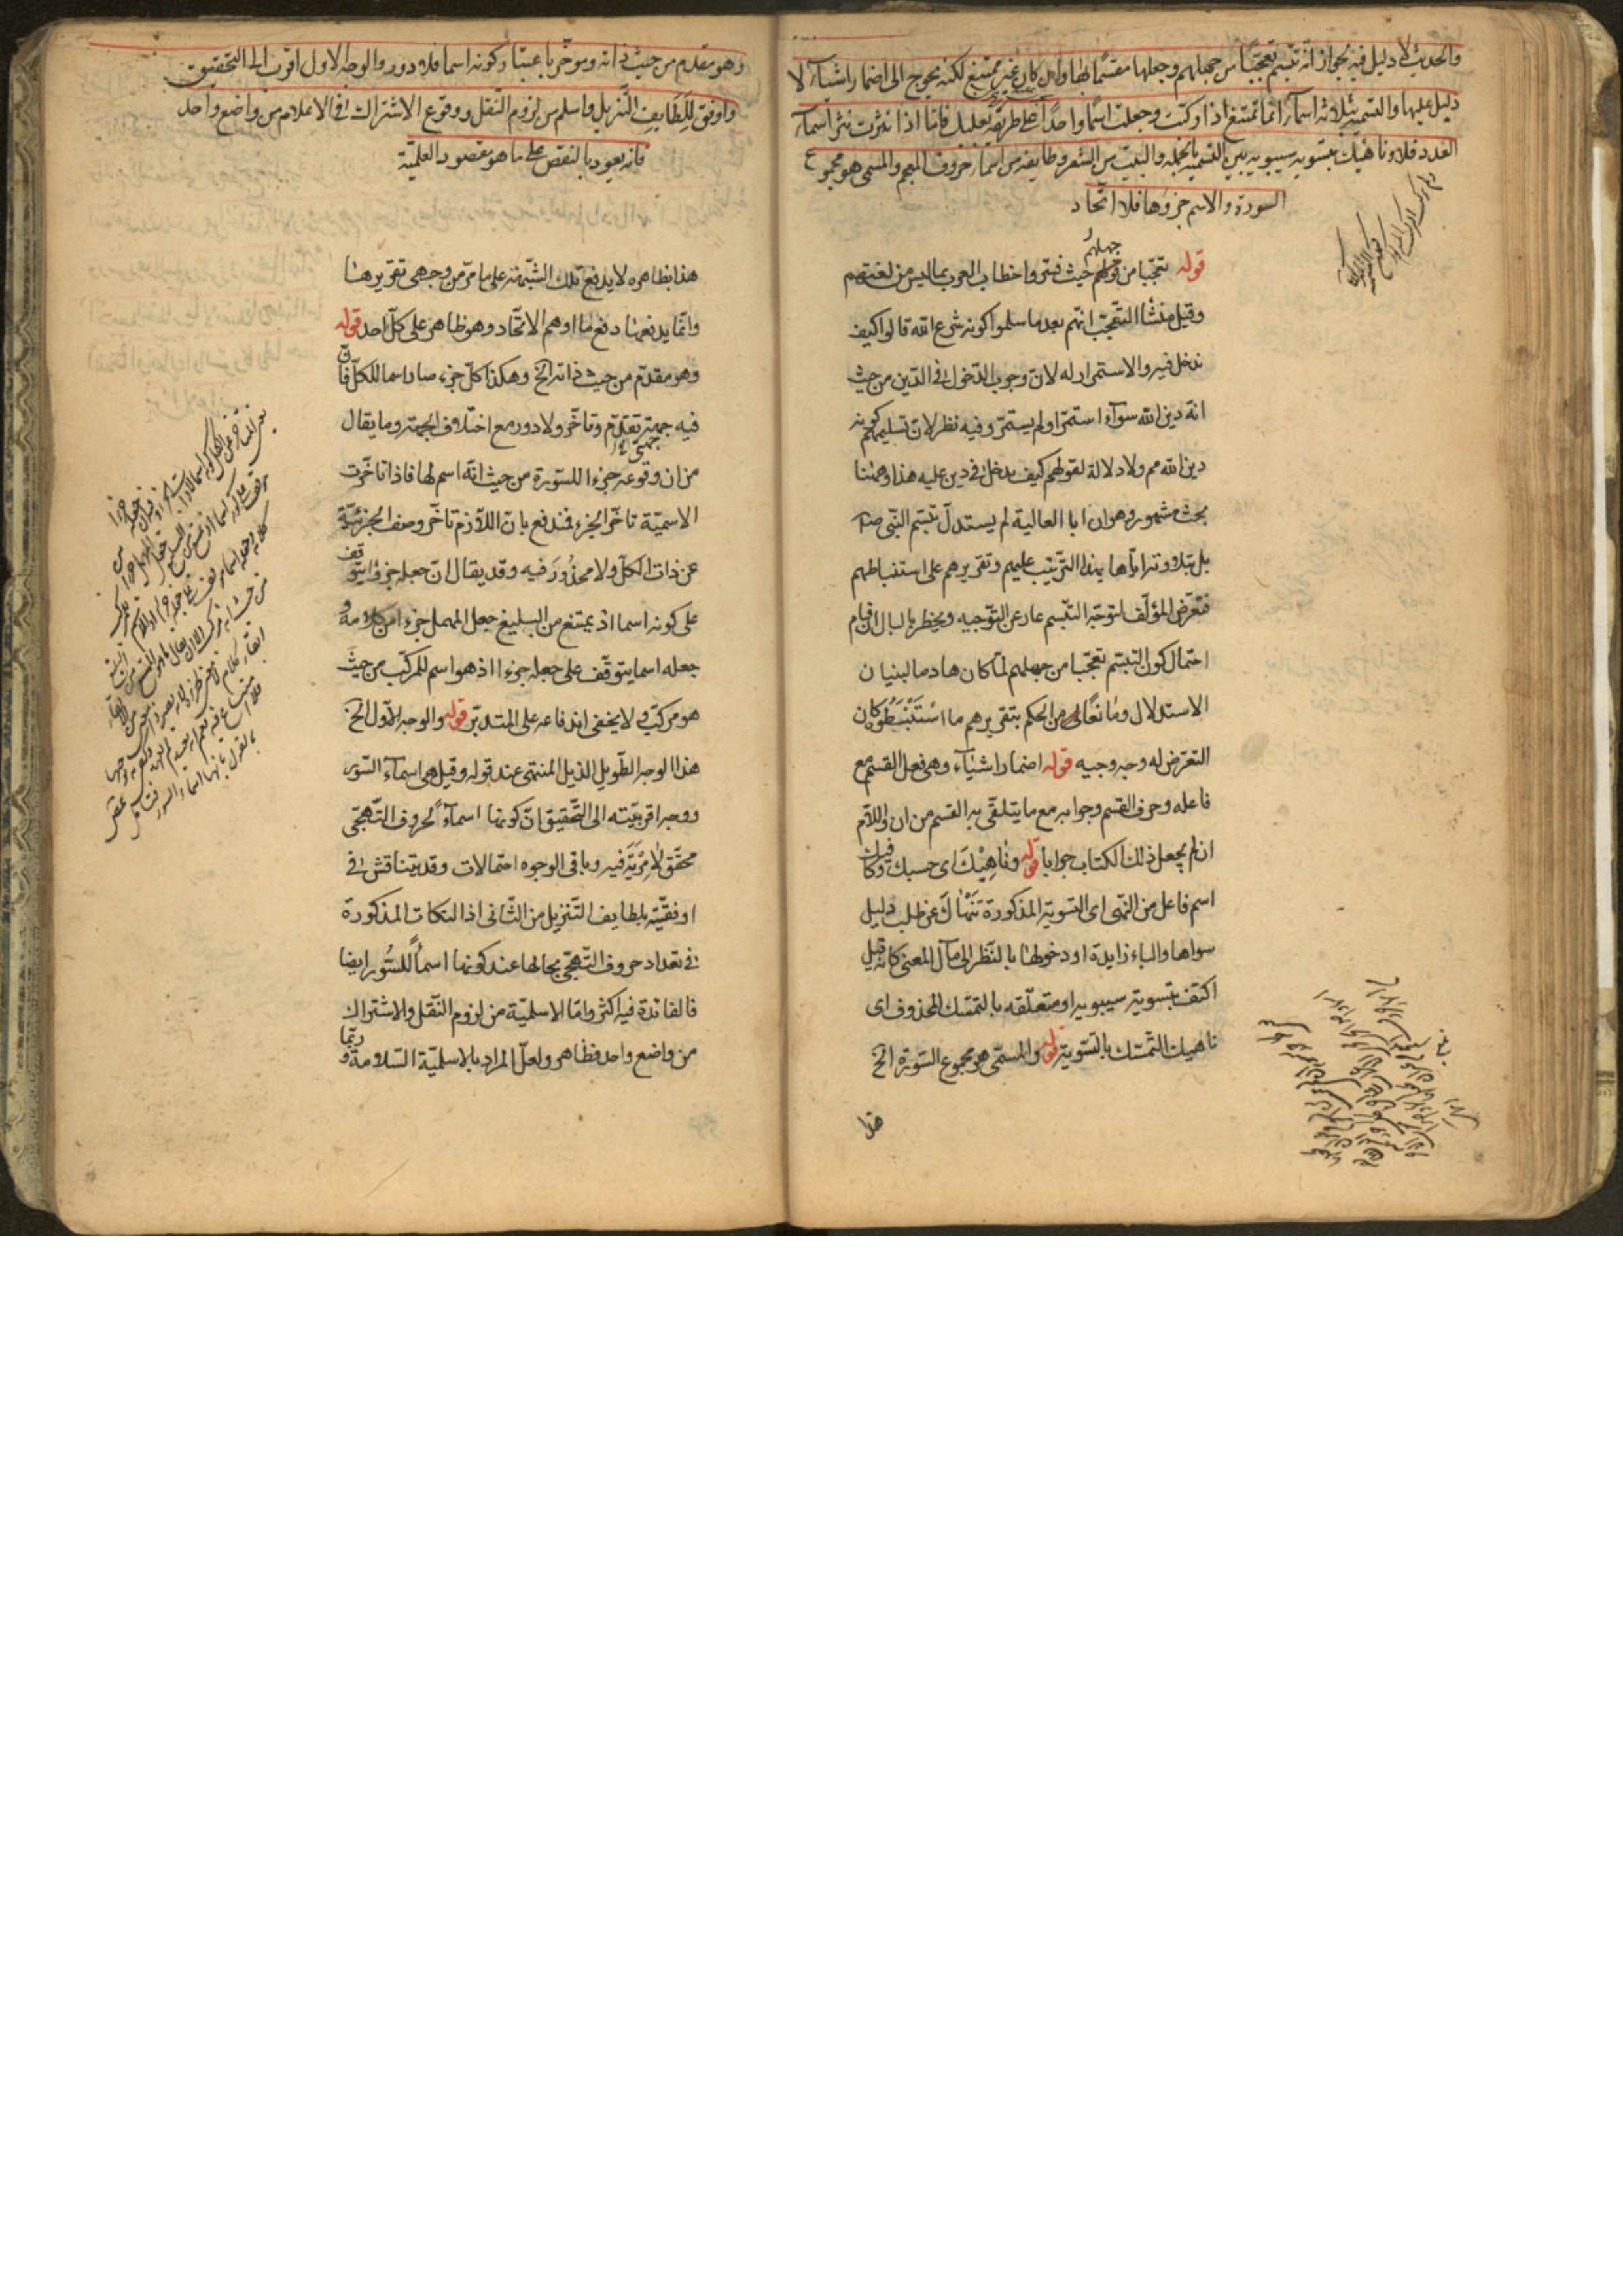 والحديث لا دليل فيه لجواز انه تبسم تعجبا من جهلهم وجعلها مقسما بها وان كان غير ممتنع لكنه يحوج الى اضمار اشياء لا
دليل عليها والتسمية بثلاثة اسماء انما تمتنع اذا ركبت وجعلت اسما واحدا على طريقة بعلبك فاما اذا نثرت نثر اسماء
العدد فلا وناهيك بتسوية سيبويه بين التسمية بالجملة والبيت من الشعر وطايفة من اسماء حروف المعجم والمسمى هو مجموع
السورة والاسم جزؤها فلا اتحاد
قوله تعجبا من جهلهم حيث فسروا خطاب العرب بما ليس من لغتهم
وقيل منشا التعجب انهم بعد ما سلموا كونه شرع الله قالوا كيف
ندخل فيه والاستمرار له لان وجوب الدخول في الدين من حيث
انه دين الله سواء استمر او لم يستمر وفيه نظر لان تسليمهم كونه
دين الله مم ولا دلالة لقولهم كيف ندخل في دين عليه هذا وههنا
بحث مشهور وهو ان ابا العالية لم يستدل بتبسم النبي
بل بتلاوته اياها بهذا الترتيب عليهم وتقريرهم على استنباطهم
فتعرض المؤلف لتوجه التبسم عار عن التوجيه ويخطر بالبال ان قيام
احتمال كون التبسم تعجبا من جهلهم لما كان هادما لبنيان
الاستدلال ومانعا من الحكم بتقريرهم ما استنبطوه كان
التعرض له وجه وجيه قوله اضمار اشياء وهي فعل القسم مع
فاعله وحرف القسم وجوابه مع ما يتلقى به القسم من ان واللام
ان لم يجعل ذلك الكتاب جوابا قوله وناهيك اى حسبك وكافيك
اسم فاعل من النهى اى التسوية المذكورة تنهاك عن طلب دليل
سواها والباء زايدة او دخولها بالنظر الى مآل المعنى كانه قيل
اكتف بتسوية سيبويه او متعلقه بالتمسك المحذوف اى
ناهيك التمسك بالتسوية قوله والمسمى هو مجموع السورة الخ
هذا
وهو مقدم من حيث ذاته ومؤخر باعتبار كونه اسما فلا دور والوجه الاول اقرب الى التحقيق
واوفق للطايف التنزيل واسلم من لزوم النقل ووقوع الاشتراك في الاعلام من واضع واحد
فانه يعود بالنقض على ما هو مقصود العلمية
هذا بظاهره لا يدفع تلك الشبهة على ما مر من وجهى تقريرها
وانما يدفعها دفع ما اوهم الاتحاد وهو ظاهر على كل احد قوله
وهو مقدم من حيث ذاته الخ وهكذا كل جزء صار اسما للكل فان
فيه جهتى تقدم وتاخر ولا دور مع اختلاف الجهة وما يقال
من ان وقوعه جزءا للسورة من حيث انه اسم لها فاذا تاخرت
الاسمية تاخر الجزء فندفع بان اللازم تاخر وصف الجزئية
عن ذات الكل ولا محذور فيه وقد يقال ان جعله جزءا يتوقف
على كونه اسما اذ يمتنع من البليغ جعل المهمل جزءا من كلامه و
جعله اسما يتوقف على جعله جزءا اذ هو اسم للمركب من حيث
هو مركب ولا يخفى اندفاعه على المتدبر قوله والوجه الاول الخ
هذا الوجه الطويل الذيل المنتهى عند قوله وقيل هى اسماء السور
ووجه اقربيته الى التحقيق ان كونها اسماء لحروف التهجى
محقق لا مرية فيه وباقى الوجوه احتمالات وقد يتناقش في
اوفقيته بلطايف التنزيل من الثانى اذ النكات المذكورة
في تعداد حروف التهجى بحالها عند كونها اسماء للسور ايضا
فالفائدة فيه اكثر واما الاسلمية من لزوم النقل والاشتراك
من واضع واحد فظاهر ولعل المراد بالاسلمية السلامة وربما